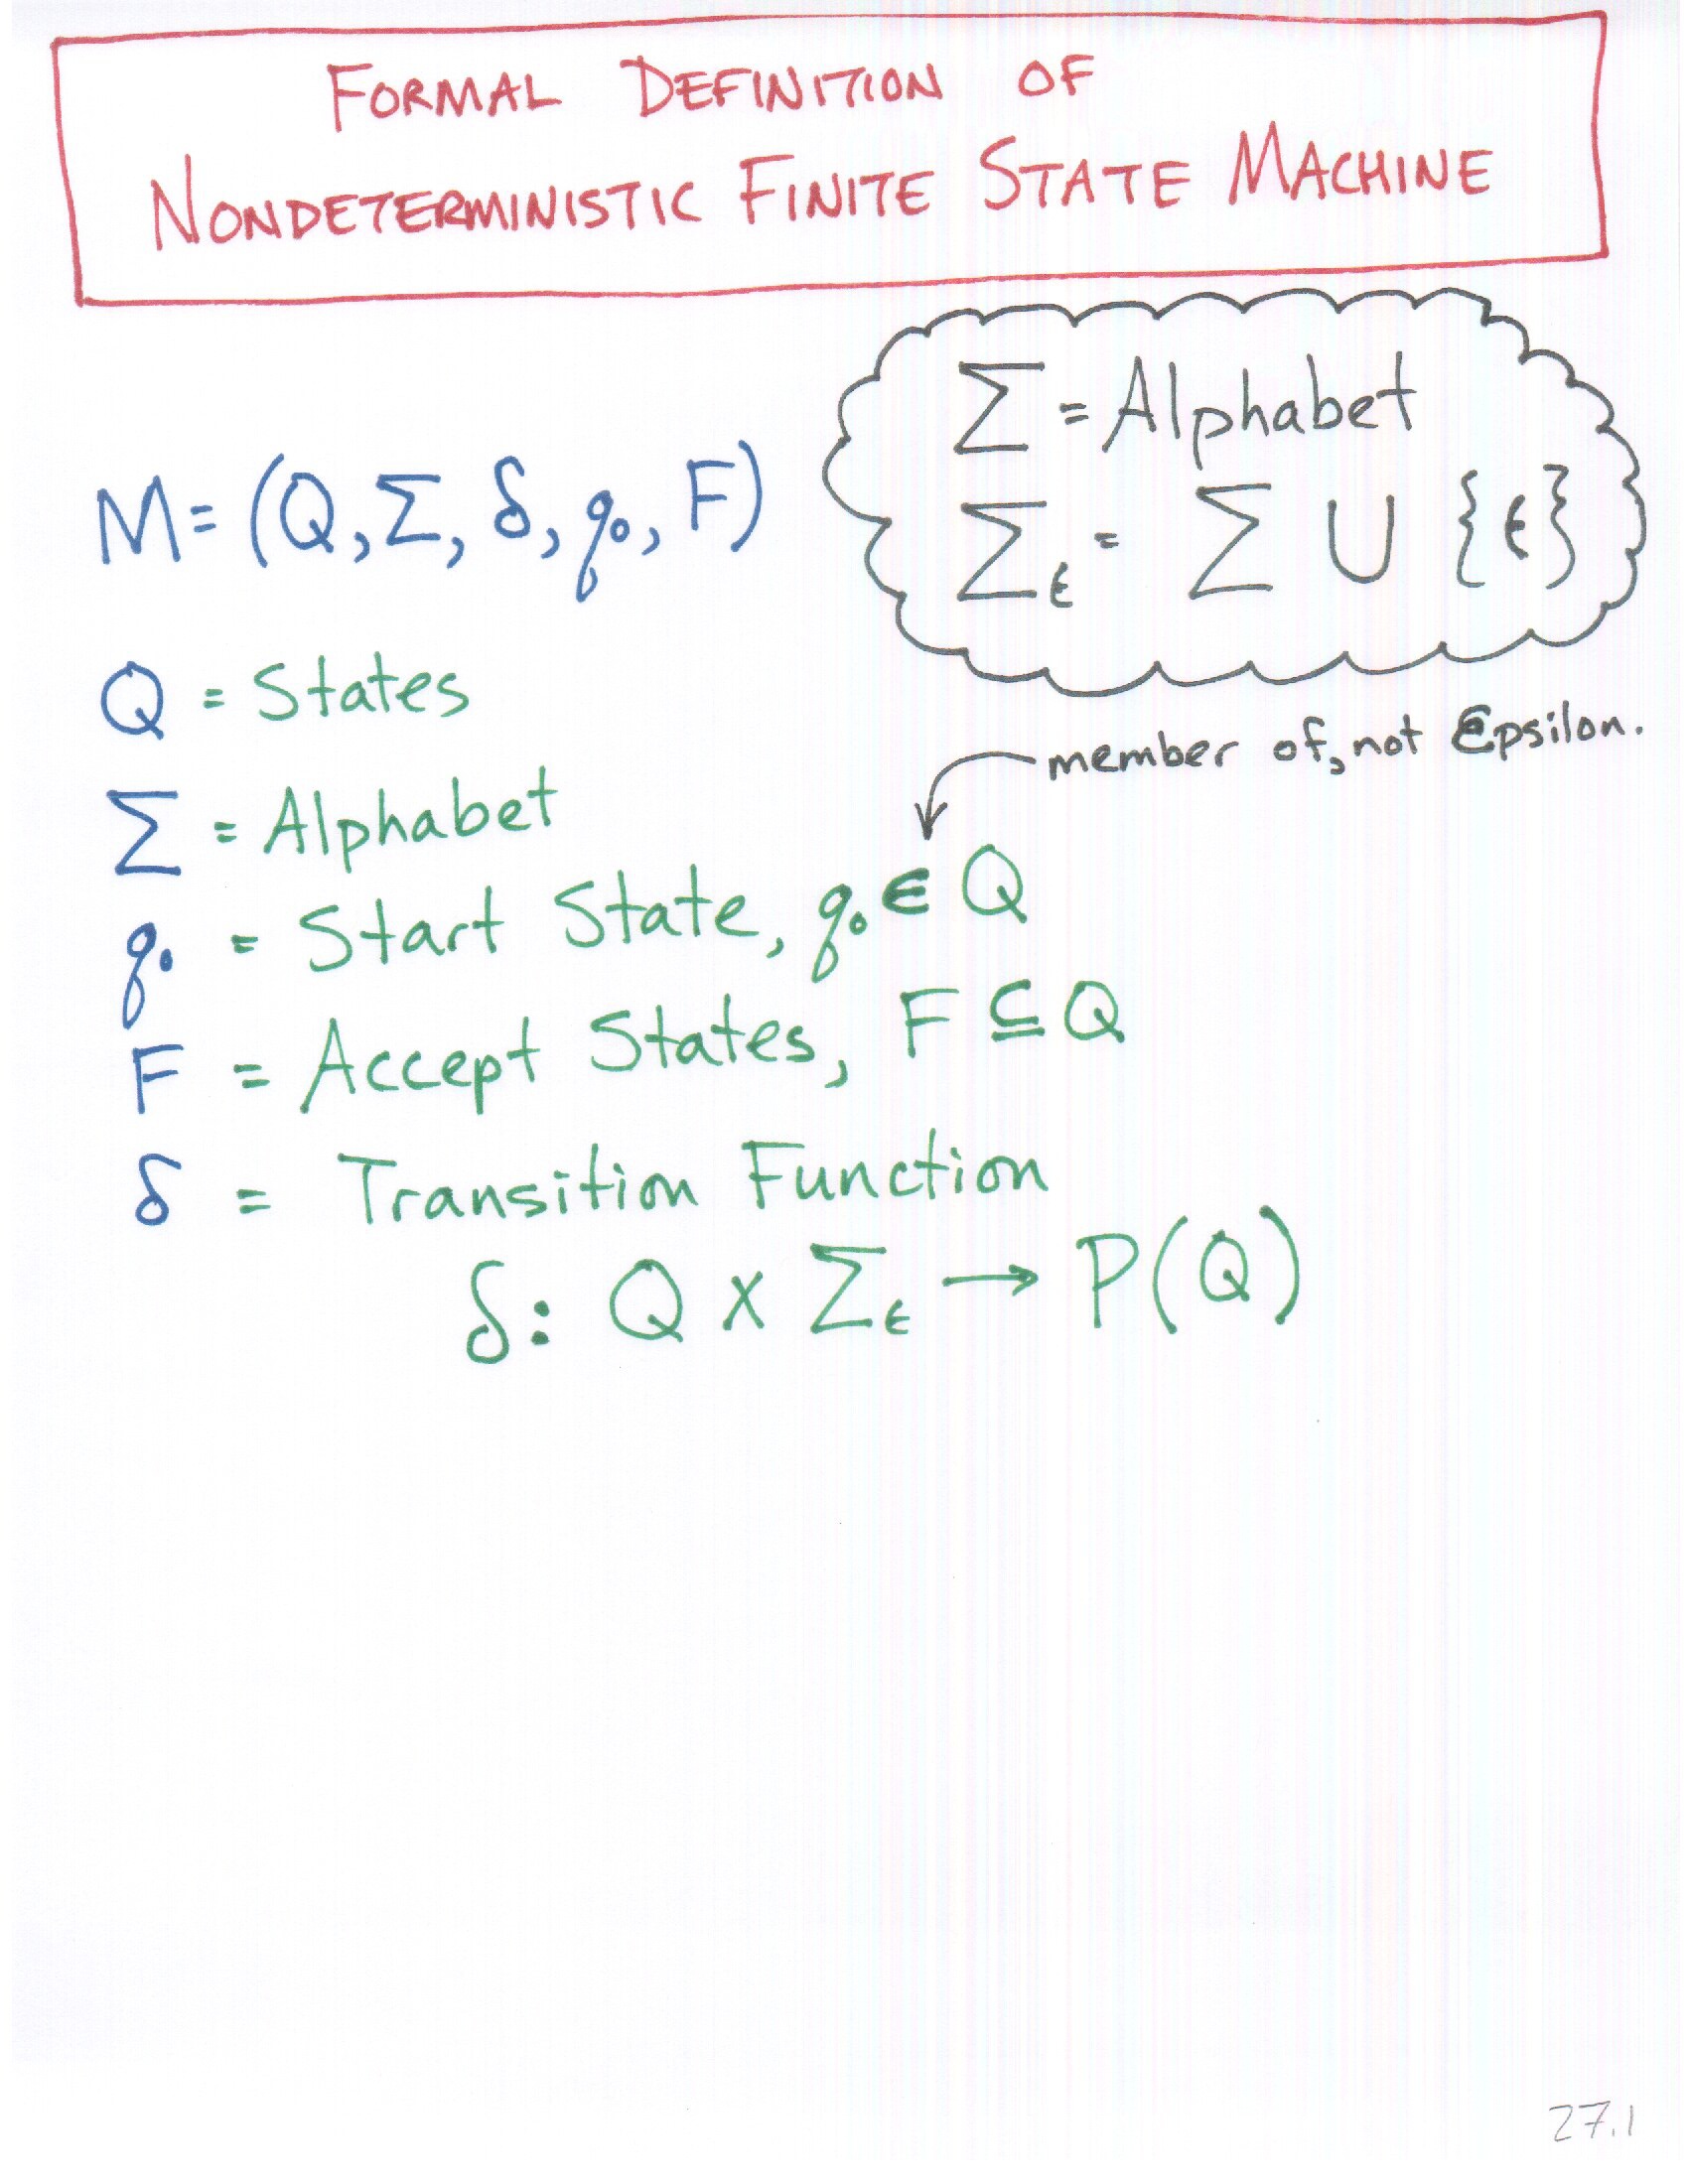 FORMAL DEFINITION OF
NONDETERMINISTIC FINITE STATE MACHINE
Σ = Alphabet
Σε = Σ ∪ {ε}
M = (Q, Σ, δ, q₀, F)
Q = States
member of, not Epsilon.
Σ = Alphabet
q₀ = Start State, q₀ ∈ Q
F = Accept States, F ⊆ Q
δ = Transition Function
δ: Q x Σε → P(Q)
27.1